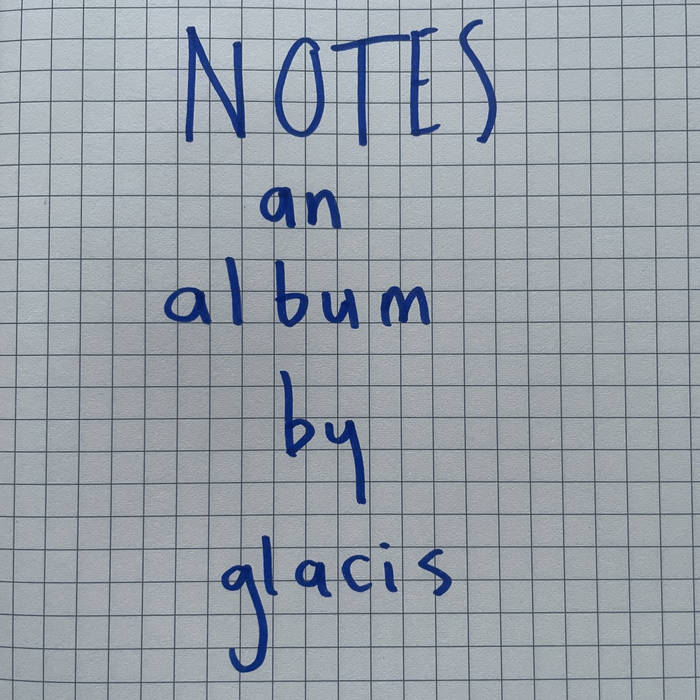 NOTES
an
album
by
glacis